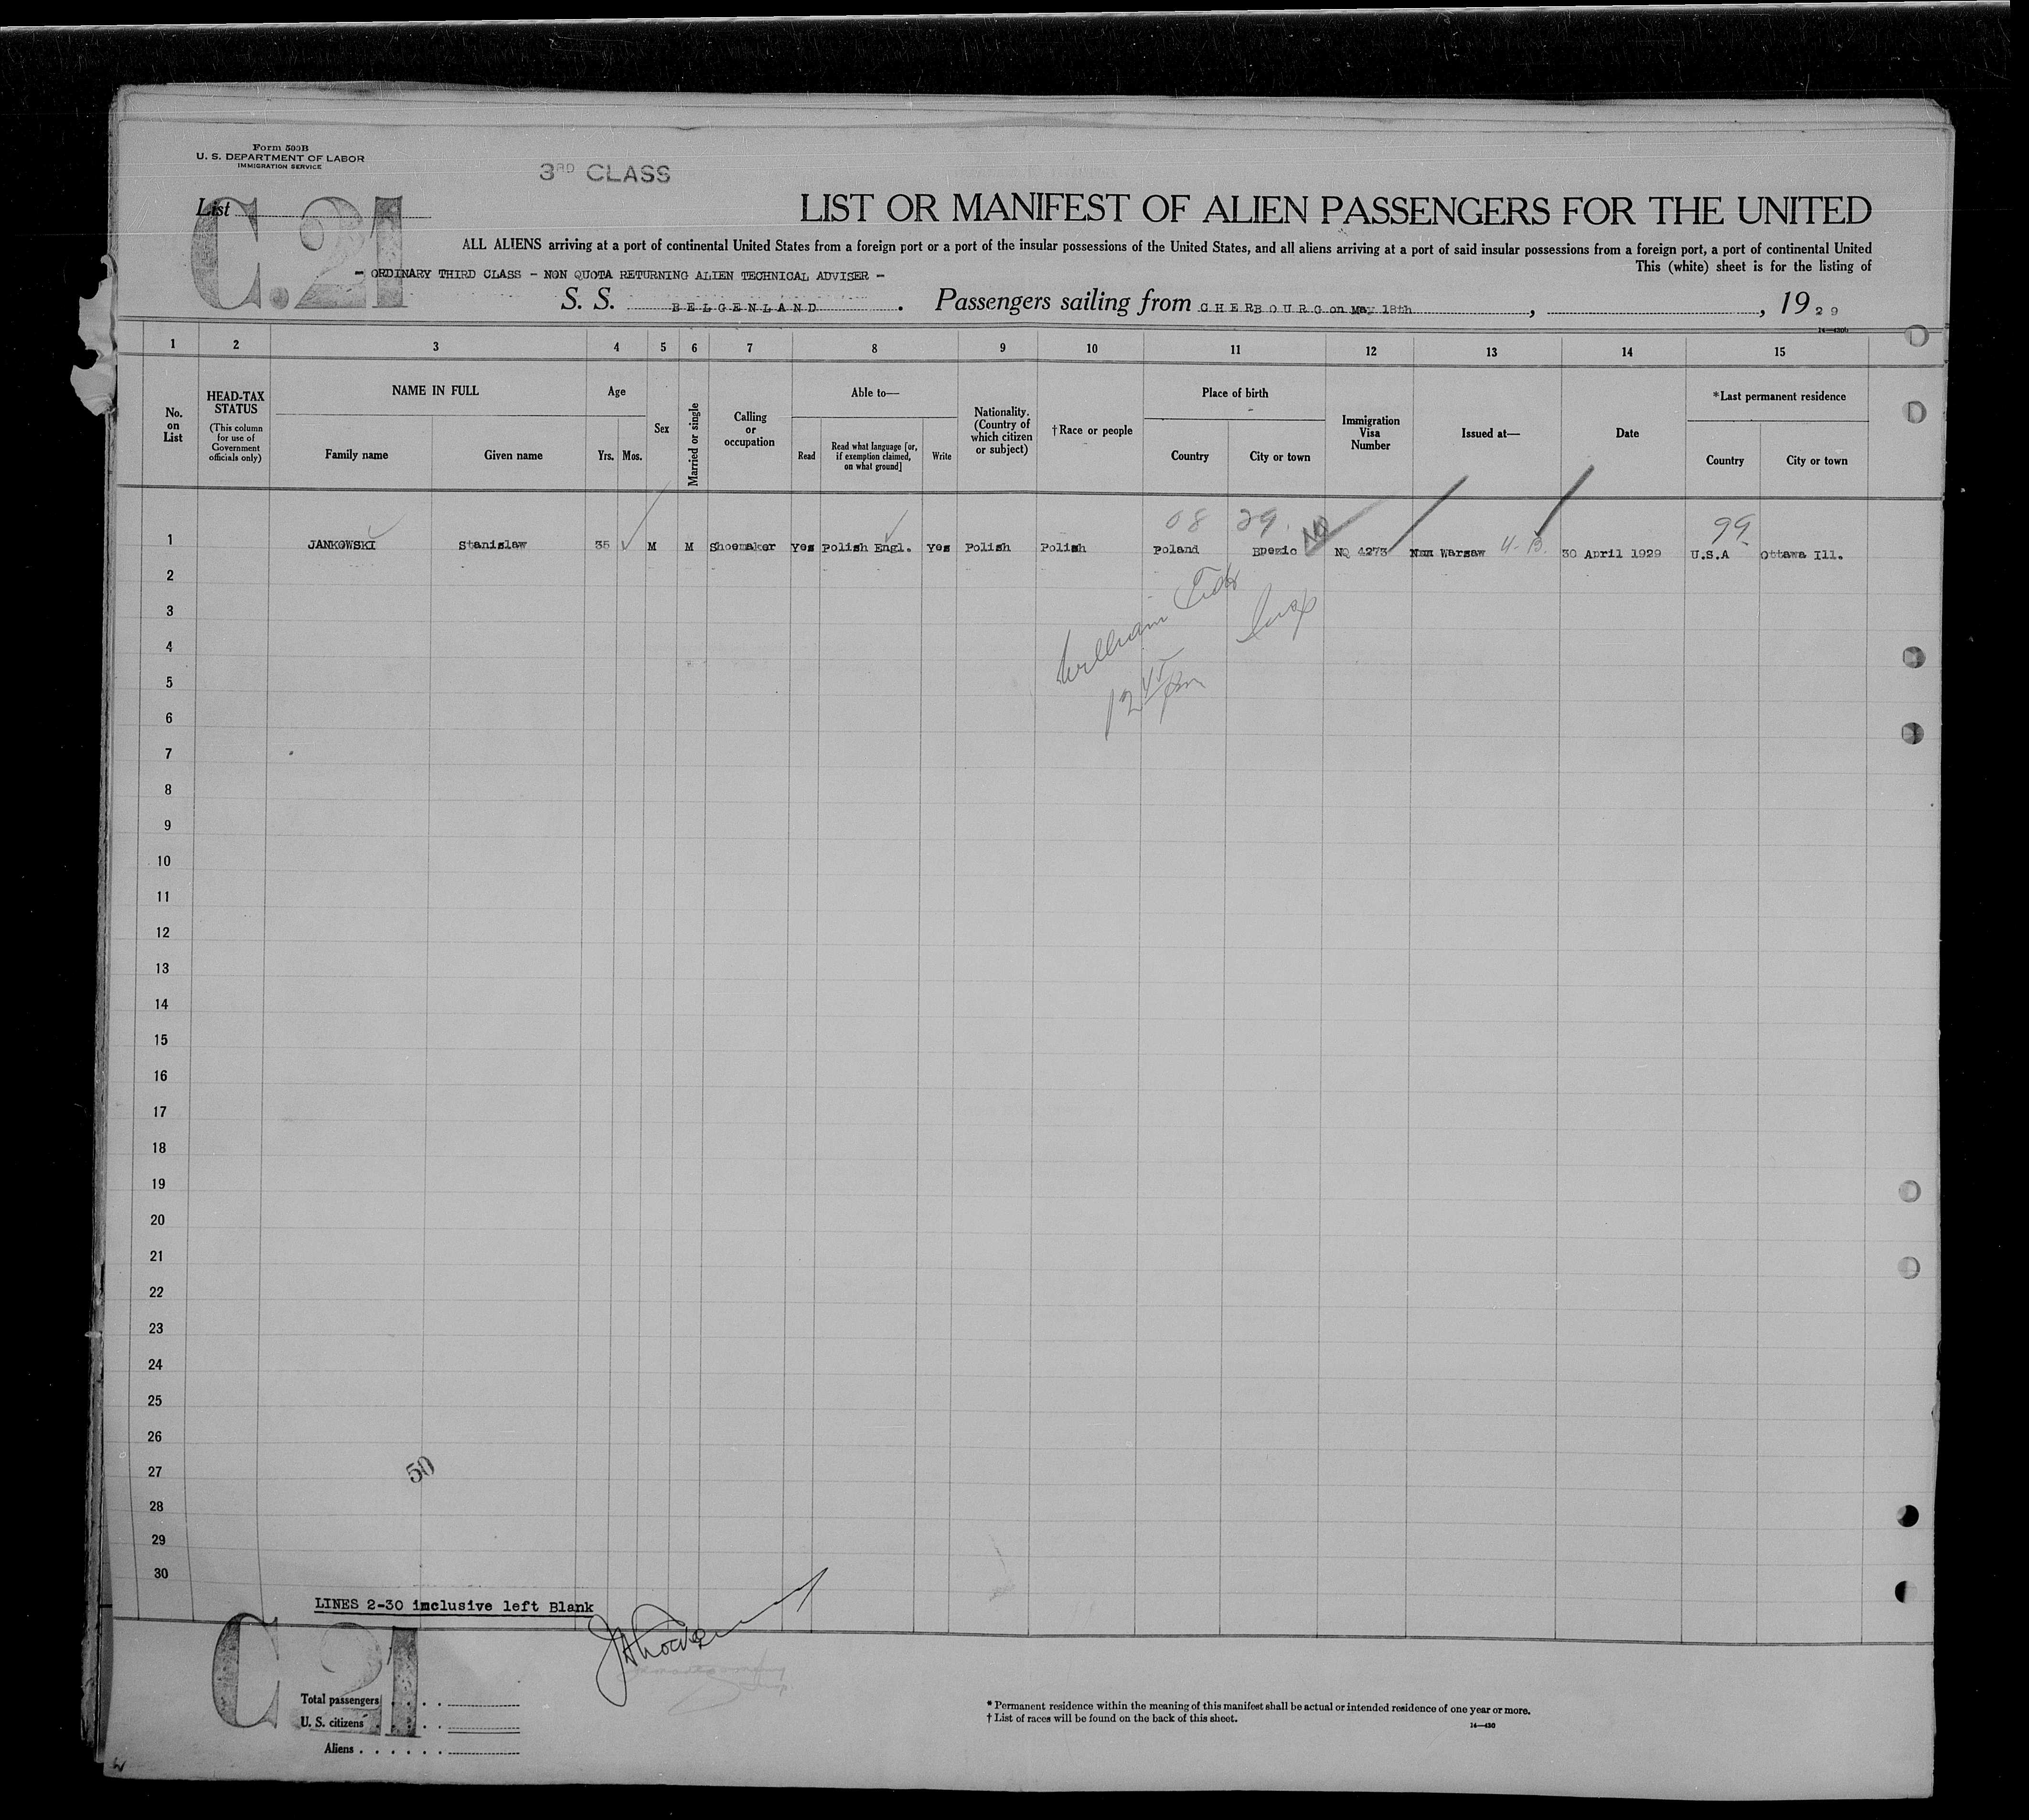 Form 500B
U. S. DEPARTMENT OF LABOR
IMMIGRATION SERVICE
3RD CLASS
List
C.21
LIST OR MANIFEST OF ALIEN PASSENGERS FOR THE UNITED
ALL ALIENS arriving at a port of continental United States from a foreign port or a port of the insular possessions of the United States, and all aliens arriving at a port of said insular possessions from a foreign port, a port of continental United
This (white) sheet is for the listing of
- ORDINARY THIRD CLASS - NON QUOTA RETURNING ALIEN TECHNICAL ADVISER -
S. S. BELGENLAND. Passengers sailing from CHERBOURG on May 18th, , 1929
1 2 3 4 5 6 7 8 9 10 11 12 13 14 15
No. on List
HEAD-TAX STATUS (This column for use of Government officials only)
NAME IN FULL
Family name
Given name
Age
Yrs. Mos.
Sex
Married or single
Calling or occupation
Able to—
Read
Read what language [or, if exemption claimed, on what ground]
Write
Nationality. (Country of which citizen or subject)
†Race or people
Place of birth
Country
City or town
Immigration Visa Number
Issued at—
Date
*Last permanent residence
Country
City or town
08 29. NQ 99
1 JANKOWSKI Stanislaw 35 M M Shoemaker Yes Polish Engl. Yes Polish Polish Poland NQ 4273 Warsaw 30 April 1929 U.S.A Ottawa Ill.
2
3
William Insp
4
5
12 45 pm
6
7
8
9
10
11
12
13
14
15
16
17
18
19
20
21
22
23
24
25
26
27 50
28
29
30
LINES 2-30 inclusive left Blank
C 21
Total passengers . . . .
U. S. citizens . . . .
Aliens . . . . . .
* Permanent residence within the meaning of this manifest shall be actual or intended residence of one year or more.
† List of races will be found on the back of this sheet.
14—430